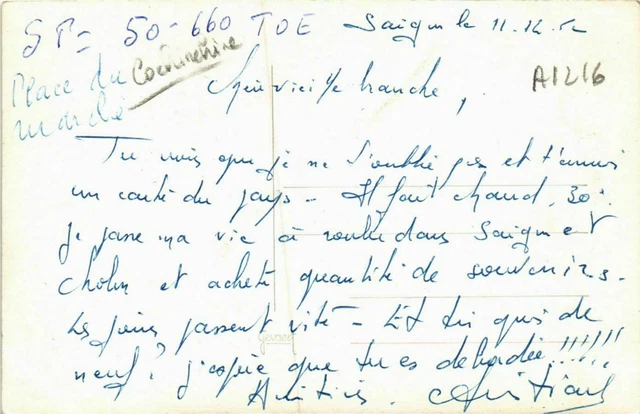 SP= 50-660 TOE
Saigon le 11.12.52
Place du
marché
Cochinchine
A1216
Mon vieille branche,
Tu vois que je ne t'oublie pas et t'envoi
un carte du pays - Il fait chaud, 30°.
je passe ma vie à rouler dans Saigon et
Cholon et acheté quantité de souvenirs.
Les jours passent vite - Et toi quoi de
neuf? j'espère que tu es débandée!!!!!!
Amitiés. Christian